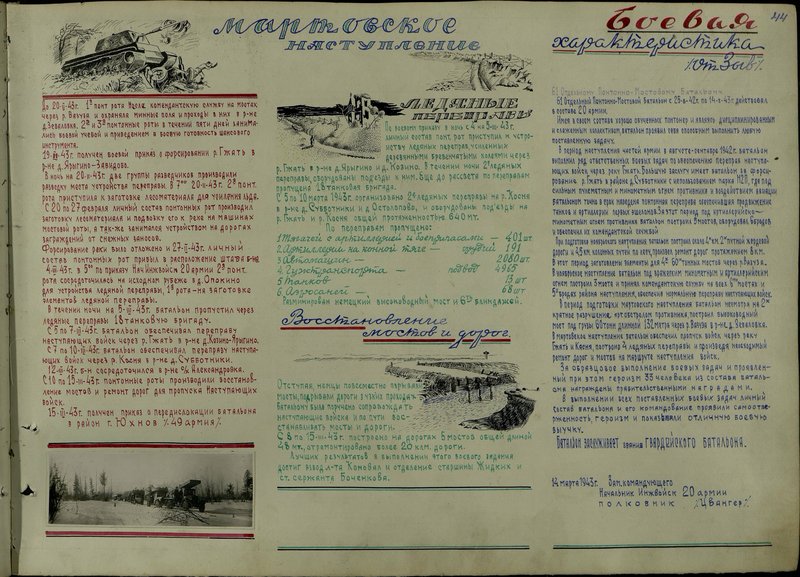 44
Мартовское
наступление
До 20-II-43г. 1ª понт. рота несла комендантскую службу на мостах
через р. Вазуза и охраняла минные поля и проходы в них в р-не
2ª и 3ª понтонные роты в течении пяти дней занима-
лись боевой учебой и приведением в боевую готовность шансового
инструмента.
получен боевой приказ о форсировании р. Гжать в
р-не д.
В ночь на 20-II-43г. две группы разведчиков производили
разведку места устройства переправы. В 7⁰⁰ 20-II-43г. 2ª понт.
рота приступила к заготовке лесоматериала для усиления льда.
С 20 по 27 февраля личный состав понтонных рот производил
заготовку лесоматериала и подвозку его к реке на машинах
мостовой роты, а так-же занимался устройством на дорогах
заграждений от снежных заносов.
Форсирование реки было отложено и 27-II-43г. личный
состав понтонных рот прибыл в расположение штаба б-на
4-III-43г. в 5⁰⁰ по приказу Нач. Инжвойск 20 армии 2ª понт.
рота сосредоточилась на исходном рубеже в д. Опокино
для устройства ледяной переправы, 1ª рота - на заготовке
элементов ледяной переправы.
В течении ночи на 5-III-43г. батальон пропустил через
ледяные переправы 18 танковую бригаду.
С 5 по 7-III-43г. батальон обеспечивал переправу
наступающих войск через р. Гжать в р-не д. Козино-Ярыгино.
С 7 по 10-III-43г. батальон обеспечивал переправу наступа-
ющих войск через р. Касня в р-не д. Субботники.
12-III-43г. б-н сосредоточился в р-не с/х Александровка.
С 10 по 15-III-43г. понтонные роты производили восстанов-
ление мостов и ремонт дорог для пропуска наступающих
войск.
15-III-43г. получен приказ о передислокации батальона
в район г. Юхнов /49 армия/.
Ледяные
переправы
По боевому приказу в ночь с 4 на 5-III-43г.
личный состав понт. рот приступил к устро-
йству ледяных переправ усиленных
деревянными бревенчатыми колеями через
р. Гжать в р-не д. Ярыгино и д. Козино. В течении ночи 2 ледяных
переправы, оборудованы подъезды к ним. Еще до рассвета по переправам
пропущена 18 танковая бригада.
С 5 по 10 марта 43г. организовано 2 ледяных переправы на р. Касня
в р-не д. Субботники и д. Остолопово, и оборудованы подъезды на
р. Гжать и р. Касня общей протяженностью 640 мт.
По переправам пропущено:
1. Тягачей с артиллерией и боеприпасами — 401 шт.
2. Артиллерии на конной тяге — орудий 191
3. Автомашин — 2080 шт
4. Гужтранспорта — подвод 4965
5. Танков — 13 шт
6. Аэросаней — 68 шт
Разминирован немецкий высоководный мост и 6 блиндажей.
Восстановление
мостов и дорог.
Отступая, немцы повсеместно подрывали
мосты, подрывали дороги в узких проходах.
Батальону была поручено сопровождать
наступающие войска и по пути вос-
станавливать мосты и дороги.
С 8 по 15-III-43г. построено на дорогах 6 мостов общей длиной
48 мт., отремонтировано более 20 клм. дороги.
Лучших результатов в выполнении этого боевого задания
достиг взвод л-та Коновал и отделение старшины Жидких и
ст. сержанта Боченкова.
Боевая
характеристика
/отзыв/.
61 Отдельному Понтонно-Мостовому Батальону
61 Отдельный Понтонно-Мостовой Батальон с 28-V-42г. по 14-III-43г. действовал
в составе 20 армии.
Имея в своем составе хорошо обученных понтонер и являясь дисциплинированным
и слаженным коллективом, батальон проявил себя способным выполнить любую
поставленную задачу.
В период наступления частей армии в августе-сентябре 1942г. батальон
выполнил ряд ответственных боевых задач по обеспечению переправ наступа-
ющих войск через реку Гжать. Большую заслугу имеет батальон за форси-
рование р. Гжать в районе д. Субботники с использованием парка Н2П, где под
сильным пулеметным и минометным огнем противника и воздействием авиации
батальоном точно в срок наведена понтонная переправа обеспечившая продвижение
танков и артиллерии первых эшелонов. За этот период под артиллерийско-
минометным огнем противника батальон построил 5 мостов, оборудовал бродов
и обеспечил их комендантской службой
В этот период изготовлены элементы для 4ˣ 60ᵀ тонных мостов через р. Вазуза.
В ноябрьское наступление батальон под вражеским минометным и артиллерийским
огнем построил 3 моста и принял комендантскую службу на всех
районах наступления, обеспечив нормальную переправу наступающих войск.
В период подготовки мартовского наступления батальон немногим на 2ˣ
кратное разрушение, арт. обстрелом противника построил высоководный
мост под грузы 60 тонн длинной 132 метра через р. Вазуза в р-не д.
В мартовское наступление батальон обеспечил пропуск войск через реку
Гжать и Касня, построив 4 ледяных переправы и произведя необходимый
ремонт дорог и мостов на маршруте наступления войск.
За образцовое выполнение боевых задач и проявлен-
ный при этом героизм 33 человека из состава баталь-
она награждены правительственными наградами.
В выполнении всех поставленных боевых задач личный
состав батальона и его командование проявили самоотве-
рженность героизм и показали отличную боевую
выучку.
Батальон заслуживает звания гвардейского батальона.
14 марта 1943г. Зам. командующего
Начальник Инжвойск 20 армии
полковник /Цвангер/.